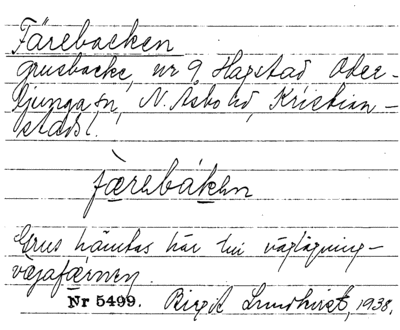 Färebacken
grusbacke, nr 9 Hagstad Oder-
ljunga sn, N. Åsbo hd, Kristian-
stads l.
færebáken
Grus hämtas här till väglagning -
vǽjafærnen.
Nr 5499. Birgit Lundkvist, 1938.